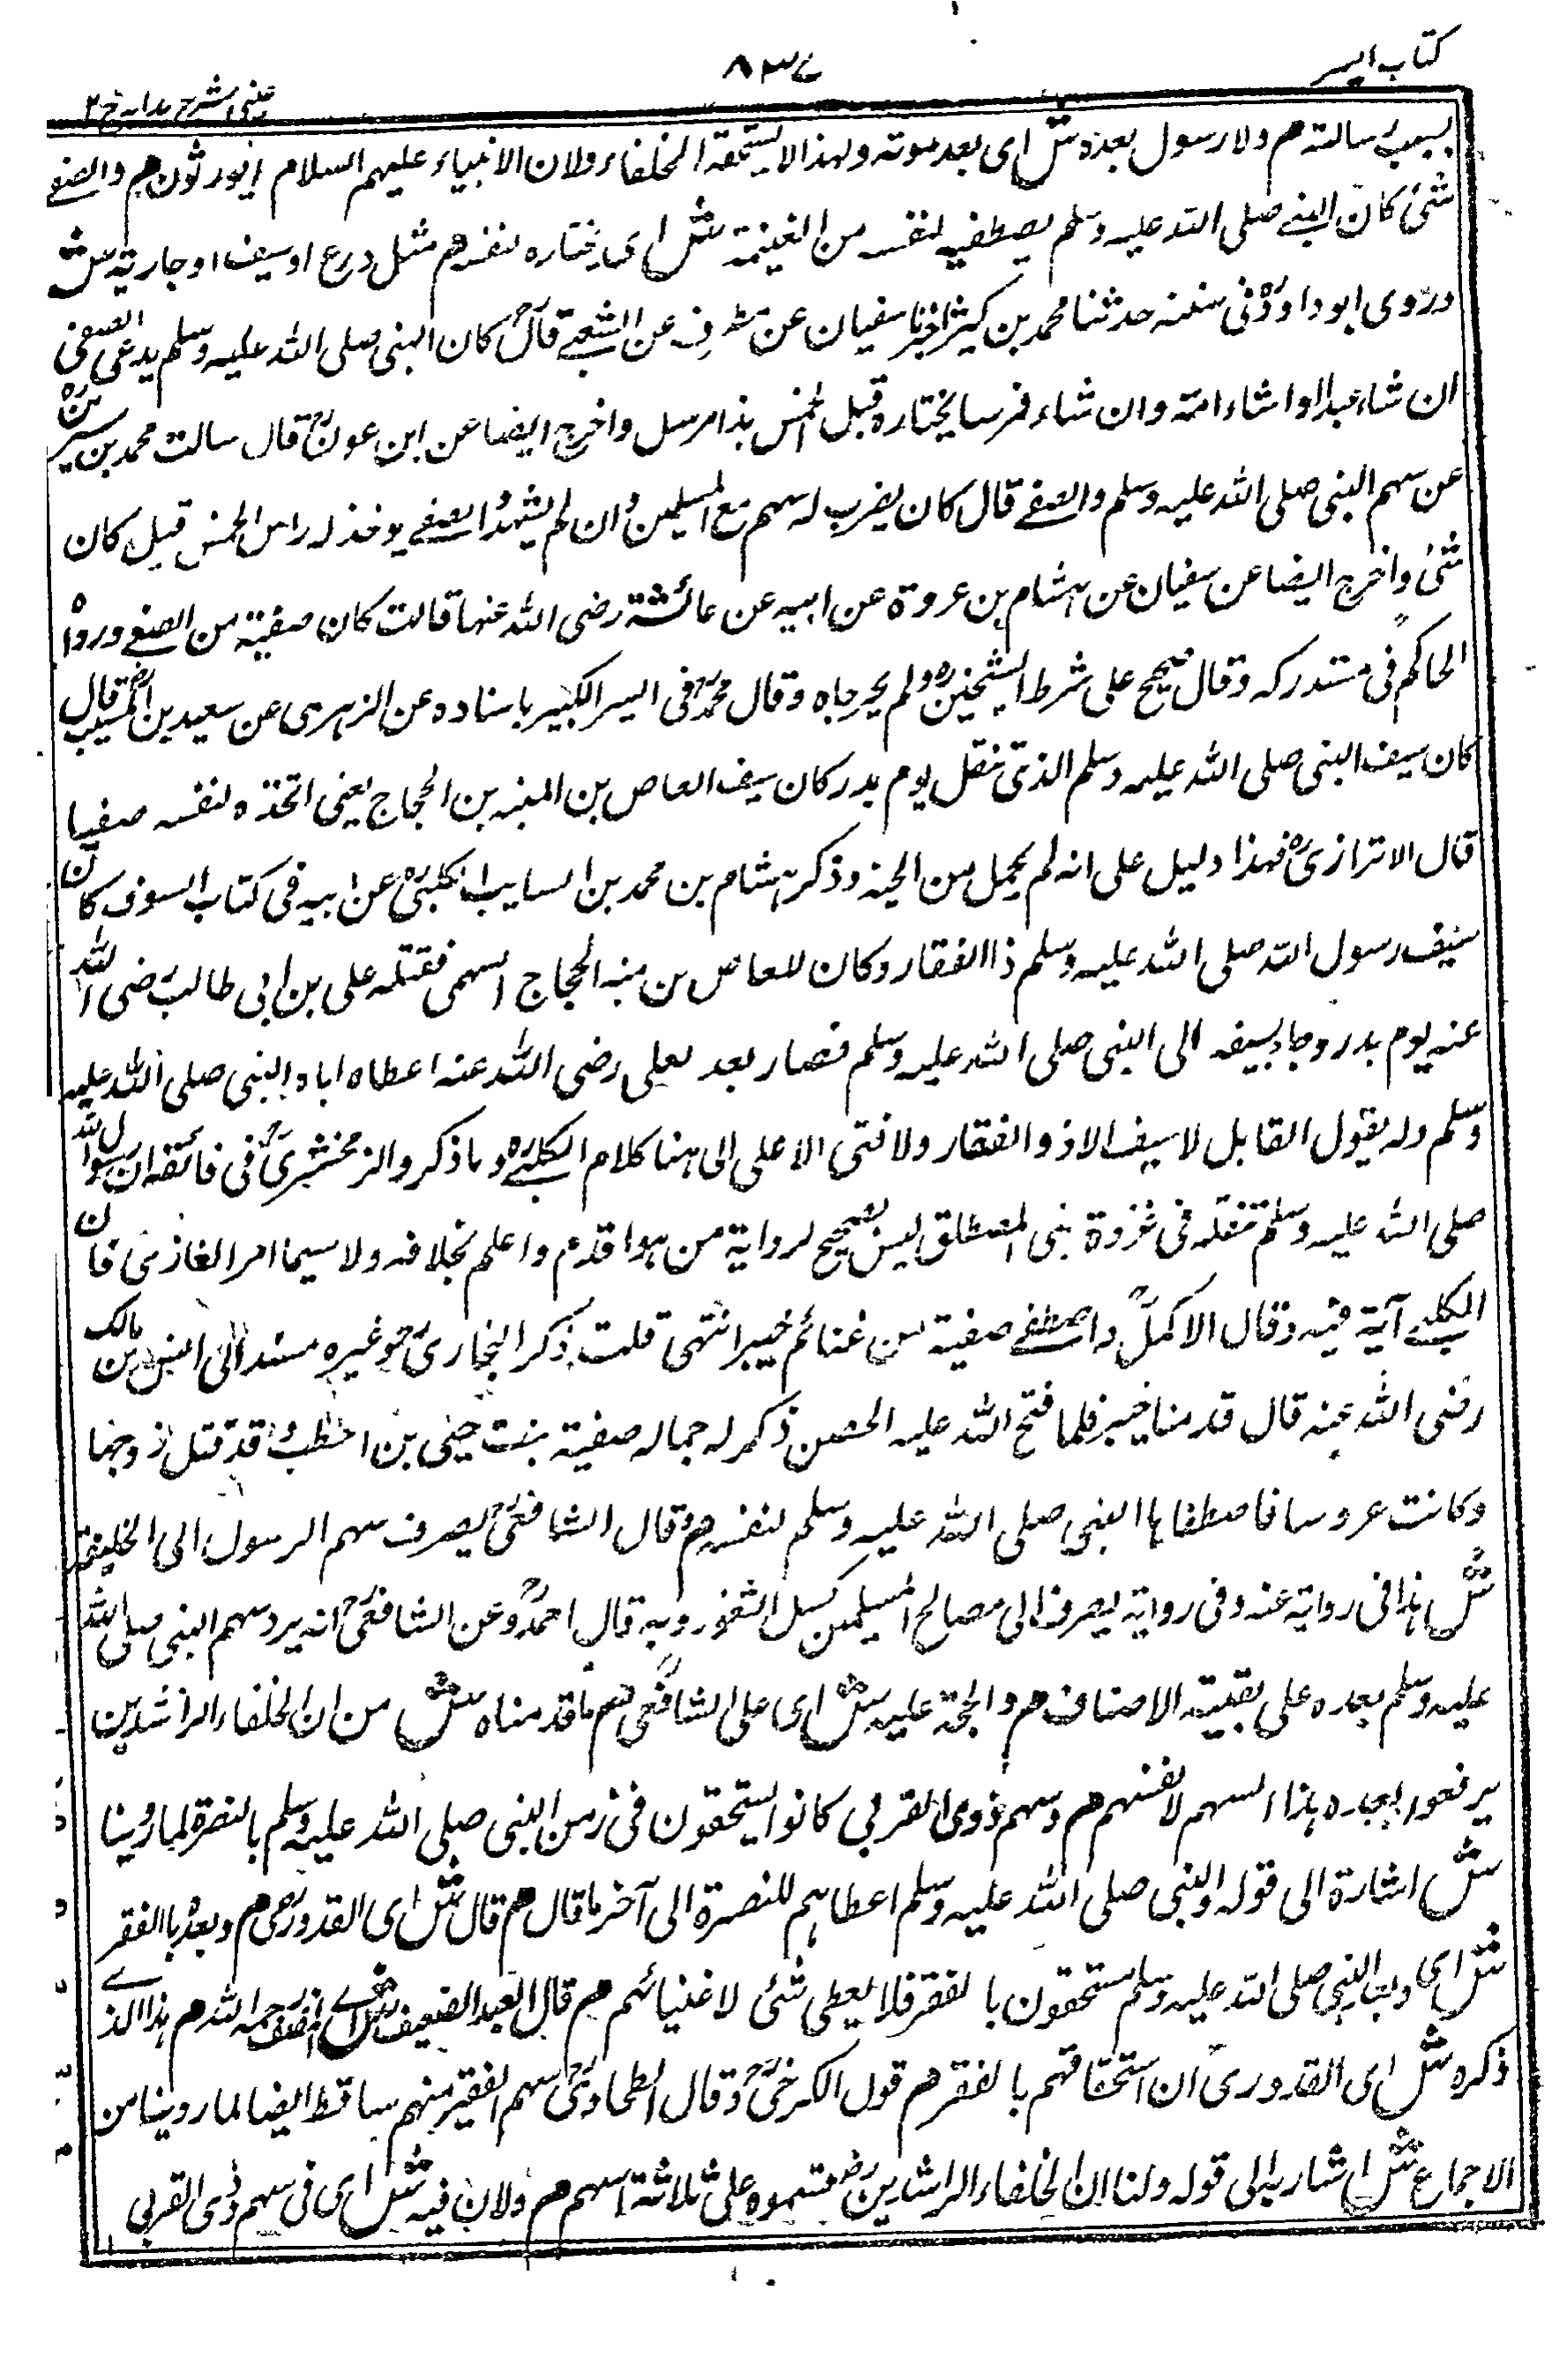 كتاب السير
٨٣٧
عينى شرح هدايه ج ٢
بسبب رسالته م ولا رسول بعده ش اى بعد موته ولهذا لا يستحقه الخلفاء ولان الانبياء عليهم السلام لا يورثون م والصفى
شئ كان النبى صلى الله عليه وسلم يصطفيه لنفسه من الغنيمة ش اى يختاره لنفسه م مثل درع او سيف او جارية ش
وروى ابو داود فى سننه حدثنا محمد بن كثير اخبرنا سفيان عن مطرف عن الشعبى قال كان للنبى صلى الله عليه وسلم يدعى الصفى
ان شاء عبدا وا شاء امة وان شاء فرسا يختاره قبل الخمس هذا مرسل واخرج ايضا عن ابن عون قال سالت محمد بن سيرين
عن سهم النبى صلى الله عليه وسلم والصفى قال كان يضرب له سهم مع المسلمين وان لم يشهد والصفى يوخذ له راس الخمس قبل كان
شئ واخرج ايضا عن سفيان عن هشام بن عروة عن ابيه عن عائشة رضى الله عنها قالت كان صفية من الصفى ورواه
الحاكم فى مستدركه وقال صحيح على شرط الشيخين ولم يخرجاه وقال محمد فى السير الكبير باسناده عن الزهرى عن سعيد بن المسيب قال
كان سيف النبى صلى الله عليه وسلم الذى تنفل يوم بدر كان سيف العاص بن المنبه بن الحجاج يعنى اتخذه لنفسه صفيا
قال الاترازى فهذا دليل على انه لم يحمل من الجنة وذكر هشام بن محمد بن السايب الكلبى عن ابيه فى كتاب السوف كان
سيف رسول الله صلى الله عليه وسلم ذا الفقار وكان للعاص بن منبه الحجاج السهمى فقتله على بن ابى طالب رضى الله
عنه يوم بدر وجاء بسيفه الى النبى صلى الله عليه وسلم فصار بعد لعلى رضى الله عنه اعطاه اياه النبى صلى الله عليه
وسلم وله يقول القايل لا سيف الا ذو الفقار ولا فتى الا على الى هنا كلام الكلبى وما ذكر والزمخشرى فى فائقه ان رسول الله
صلى الله عليه وسلم تنفله فى غزوة بنى المصطلق ليس بصحيح لرواية من هو اقدم واعلم بخلافه ولا سيما امر المغازى فان
الكلبى آية فيه وقال الاكمل واصطفى صفية من غنائم خيبر انتهى قلت ذكر البخارى وغيره مسندا الى انس بن مالك
رضى الله عنه قال قدمنا خيبر فلما فتح الله عليه الحصن ذكر له جماله صفية بنت حيى بن اخطب وقد قتل زوجها
وكانت عروسا فاصطفاها النبى صلى الله عليه وسلم لنفسه م وقال الشافعى يصرف سهم الرسول الى الخليفة
ش هذا فى رواية عنه وفى رواية يصرف الى مصالح المسلمين كسل الثغور وبه قال احمد وعن الشافعى انه يرد سهم النبى صلى الله
عليه وسلم بعده على بقية الاصناف م والحجة عليه ش اى على الشافعى م ما قدمناه ش من ان الخلفاء الراشدين
يرفعوا بعده هذا السهم لانفسهم م وسهم ذوى القربى كانوا يستحقون فى زمن النبى صلى الله عليه وسلم بالنصرة لما روينا
ش اشارة الى قوله والنبى صلى الله عليه وسلم اعطاهم للنصرة الى آخر ما قال م قال ش اى القدورى م وبعده بالفقر
ش اى وبعد النبى صلى الله عليه وسلم مستحقون بالفقر فلا يعطى شئى لاغنيائهم م قال العبد الضعيف ش اى المصنف رحمه الله م هذا الذى
ذكره ش اى القدورى ان استحقاقهم بالفقر م قول الكرخى وقال الطحاوى سهم الفقير منهم ساقط ايضا لما روينا من
الاجماع ش اشار به الى قوله ولنا ان الخلفاء الراشدين قسموه على ثلاثة اسهم م ولان فيه ش اى فى سهم ذوى القربى